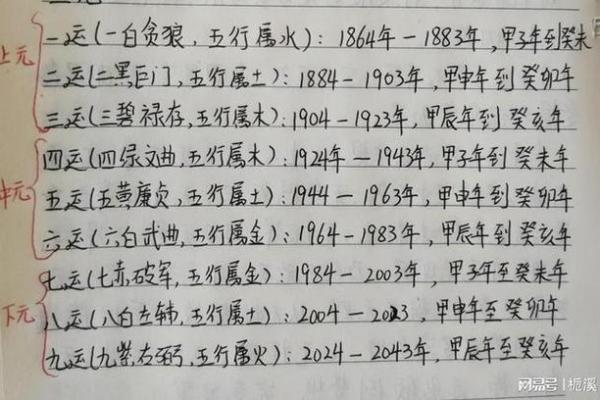 上元
一运(一白贪狼,五行属水):1864年-1883年,甲子年到癸未
二运(二黑巨门,五行属土):1884-1903年,甲申年到癸卯年
三运(三碧禄存,五行属木):1904-1923年,甲辰年到癸亥年
中元
四运(四绿文曲,五行属木):1924年-1943年,甲子年到癸未年
五运(五黄廉贞,五行属土):1944-1963年,甲申年到癸卯年
六运(六白武曲,五行属金):1964-1983年,甲辰年到癸亥年
下元
七运(七赤破军,五行属金):1984-2003年,甲子年至癸未年
八运(八白左辅,五行属土):2004-2023,甲申年至癸卯年
九运(九紫右弼,五行属火):2024-2043年,甲辰年至癸亥年
网易号 | 栀溪